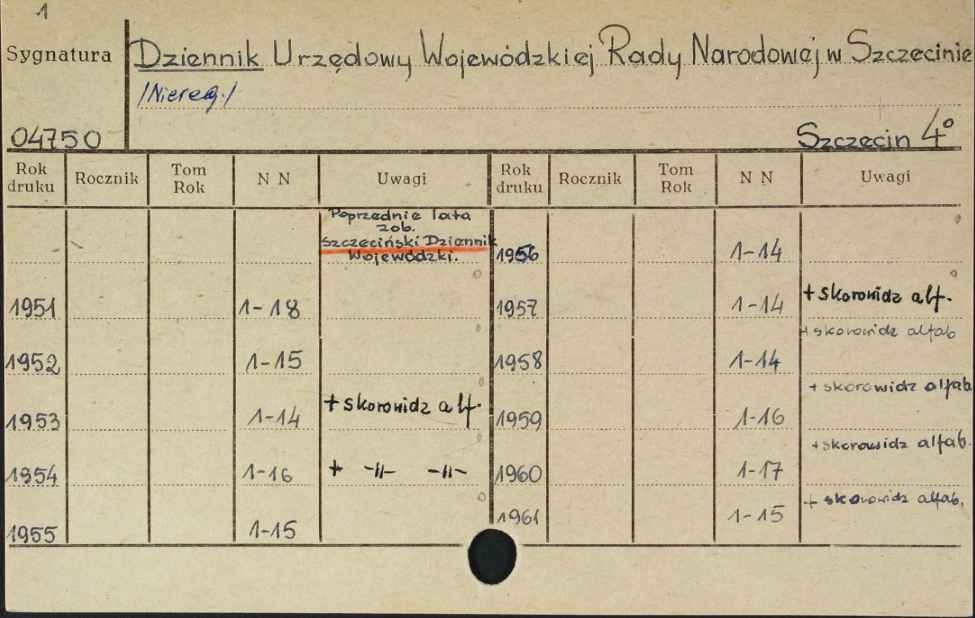 1
Sygnatura
Dziennik Urzędowy Wojewódzkiej Rady Narodowej w Szczecinie
/Niereg./
04750
Szczecin 4°
Rok druku Rocznik Tom Rok N N Uwagi Rok druku Rocznik Tom Rok N N Uwagi
Poprzednie lata
zob.
Szczeciński Dziennik
Wojewódzki.
1956 1-14
1951 1-18 1957 1-14 + skorowidz alf.
1952 1-15 1958 1-14 + skorowidz alfab
1953 1-14 + skorowidz alf. 1959 1-16 + skorowidz alfab
1954 1-16 + -||- -||- 1960 1-17 + skorowidz alfab.
1955 1-15 1961 1-15 + skorowidz alfab.